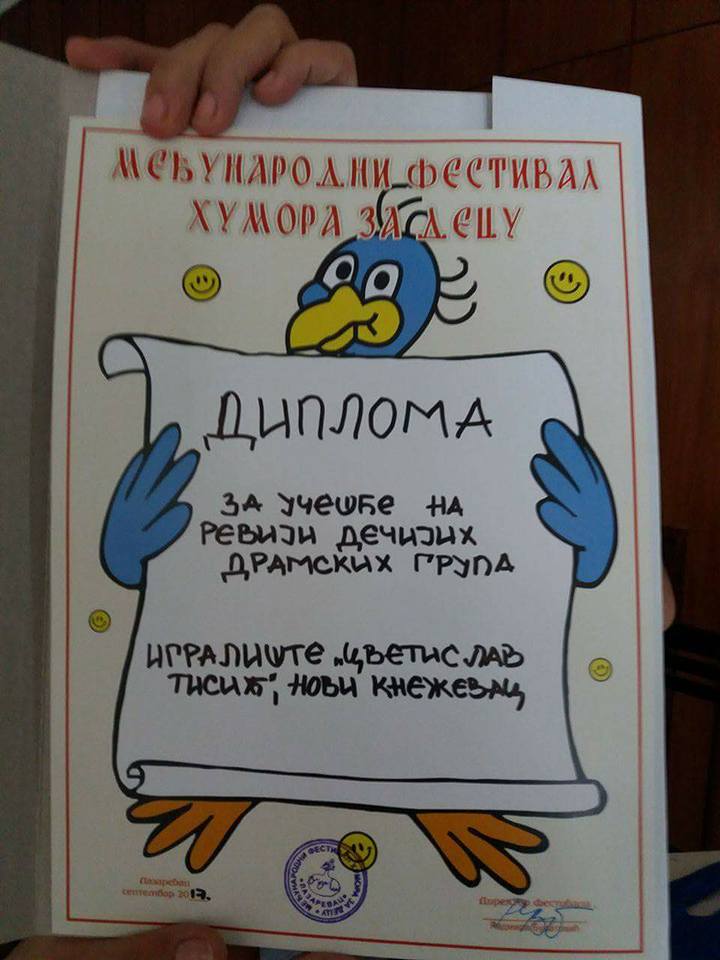 МЕЂУНАРОДНИ ФЕСТИВАЛ
ХУМОРА ЗА ДЕЦУ
ДИПЛОМА
ЗА УЧЕШЋЕ НА
РЕВИЈИ ДЕЧИЈИХ
ДРАМСКИХ ГРУПА
ИГРАЛИШТЕ „ЦВЕТИСЛАВ
ТИСИЋ", НОВИ КНЕЖЕВАЦ
Лазаревац
септембар 2017.
Директор Фестивала